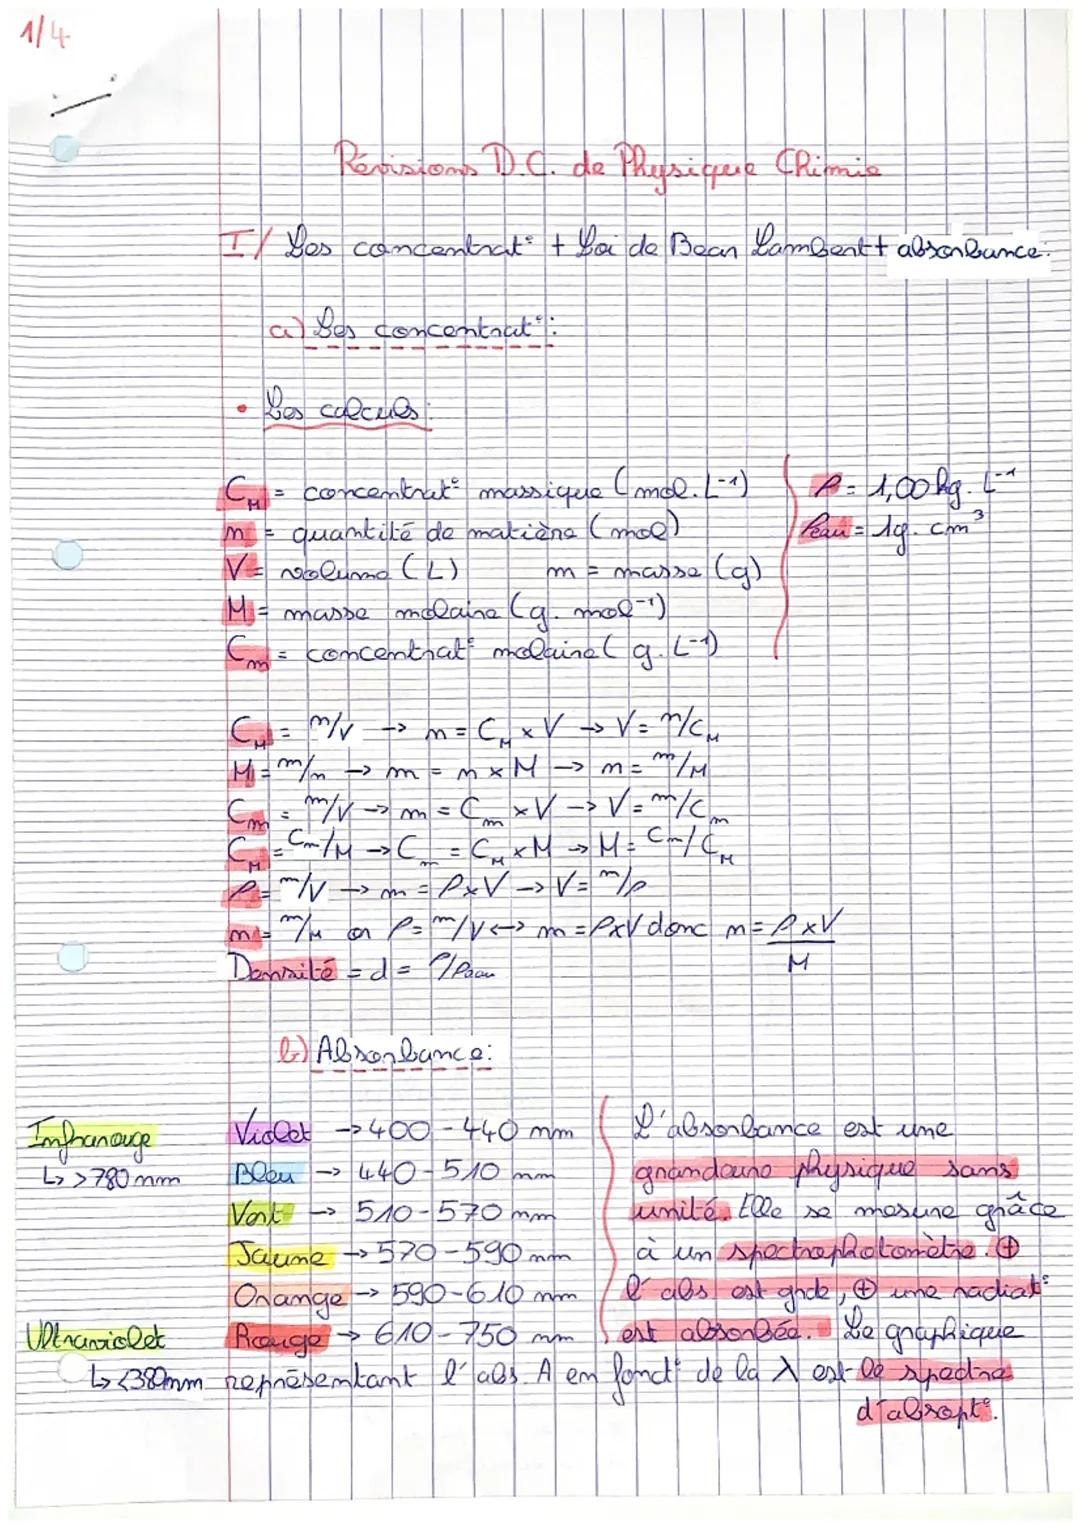 1/4
Révisions D.C. de Physique Chimie
I/ Les concentrat° + Loi de Bear Lambert + absorbance:
a) Les concentrat°:
• Les calculs:
C_M = concentrat° massique (mol.L⁻¹)
n = quantité de matière (mol)
V = volume (L) m = masse (g)
M = masse molaire (g.mol⁻¹)
C_m = concentrat° molaire (g.L⁻¹)
ρ = 1,00 kg.L⁻¹
ρeau = 1g.cm³
C_M = n/V → n = C_M × V → V = n/C_M
M = m/n → m = n × M → n = m/M
C_m = m/V → m = C_m × V → V = m/C_m
C_M = C_m/M → C_m = C_M × M → M = C_m/C_M
ρ = m/V → m = ρ×V → V = m/ρ
n = m/M or ρ = m/V ↔ m = ρ×V donc n = ρ×V/M
Densité = d = ρ/ρeau
b) Absorbance:
Infrarouge
↳ >780 nm
Violet → 400 - 440 nm
Bleu → 440-510 nm
Vert → 510-570 nm
Jaune → 570-590 nm
Orange → 590-610 nm
Ultraviolet
↳ <380nm
Rouge → 610-750 nm
L'absorbance est une
grandeure physique sans
unité. Elle se mesure grâce
à un spectrophotomètre. ⊕
l'abs est grde, ⊕ une radiat°
est absorbée. Le graphique
représentant l'abs. A en fonct° de la λ est le spectre
d'absorpt°.